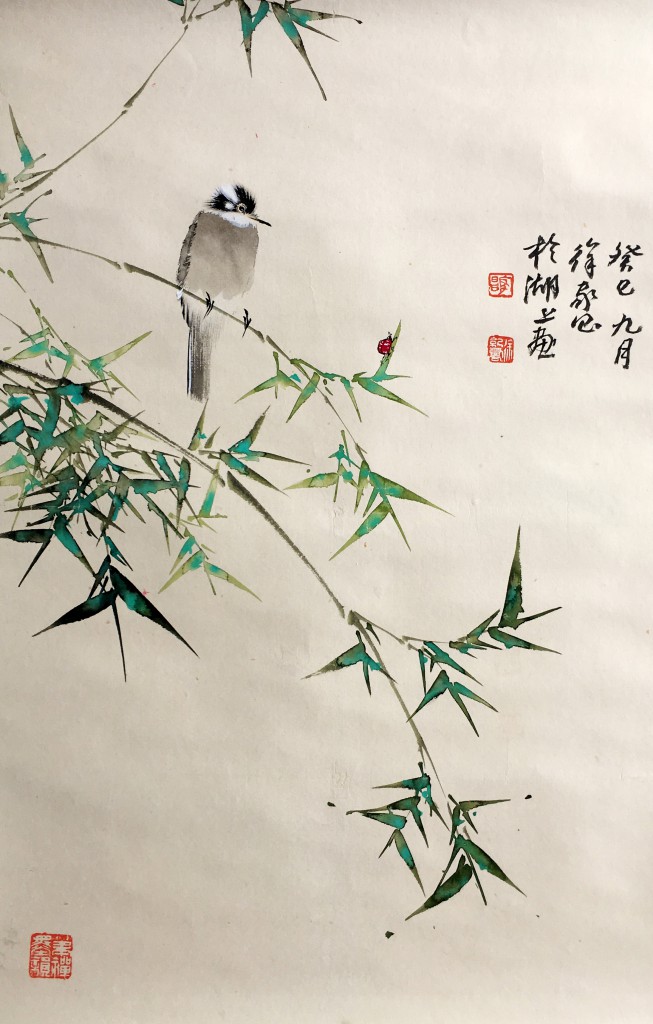 癸巳九月
徐家昌
於湖上畫